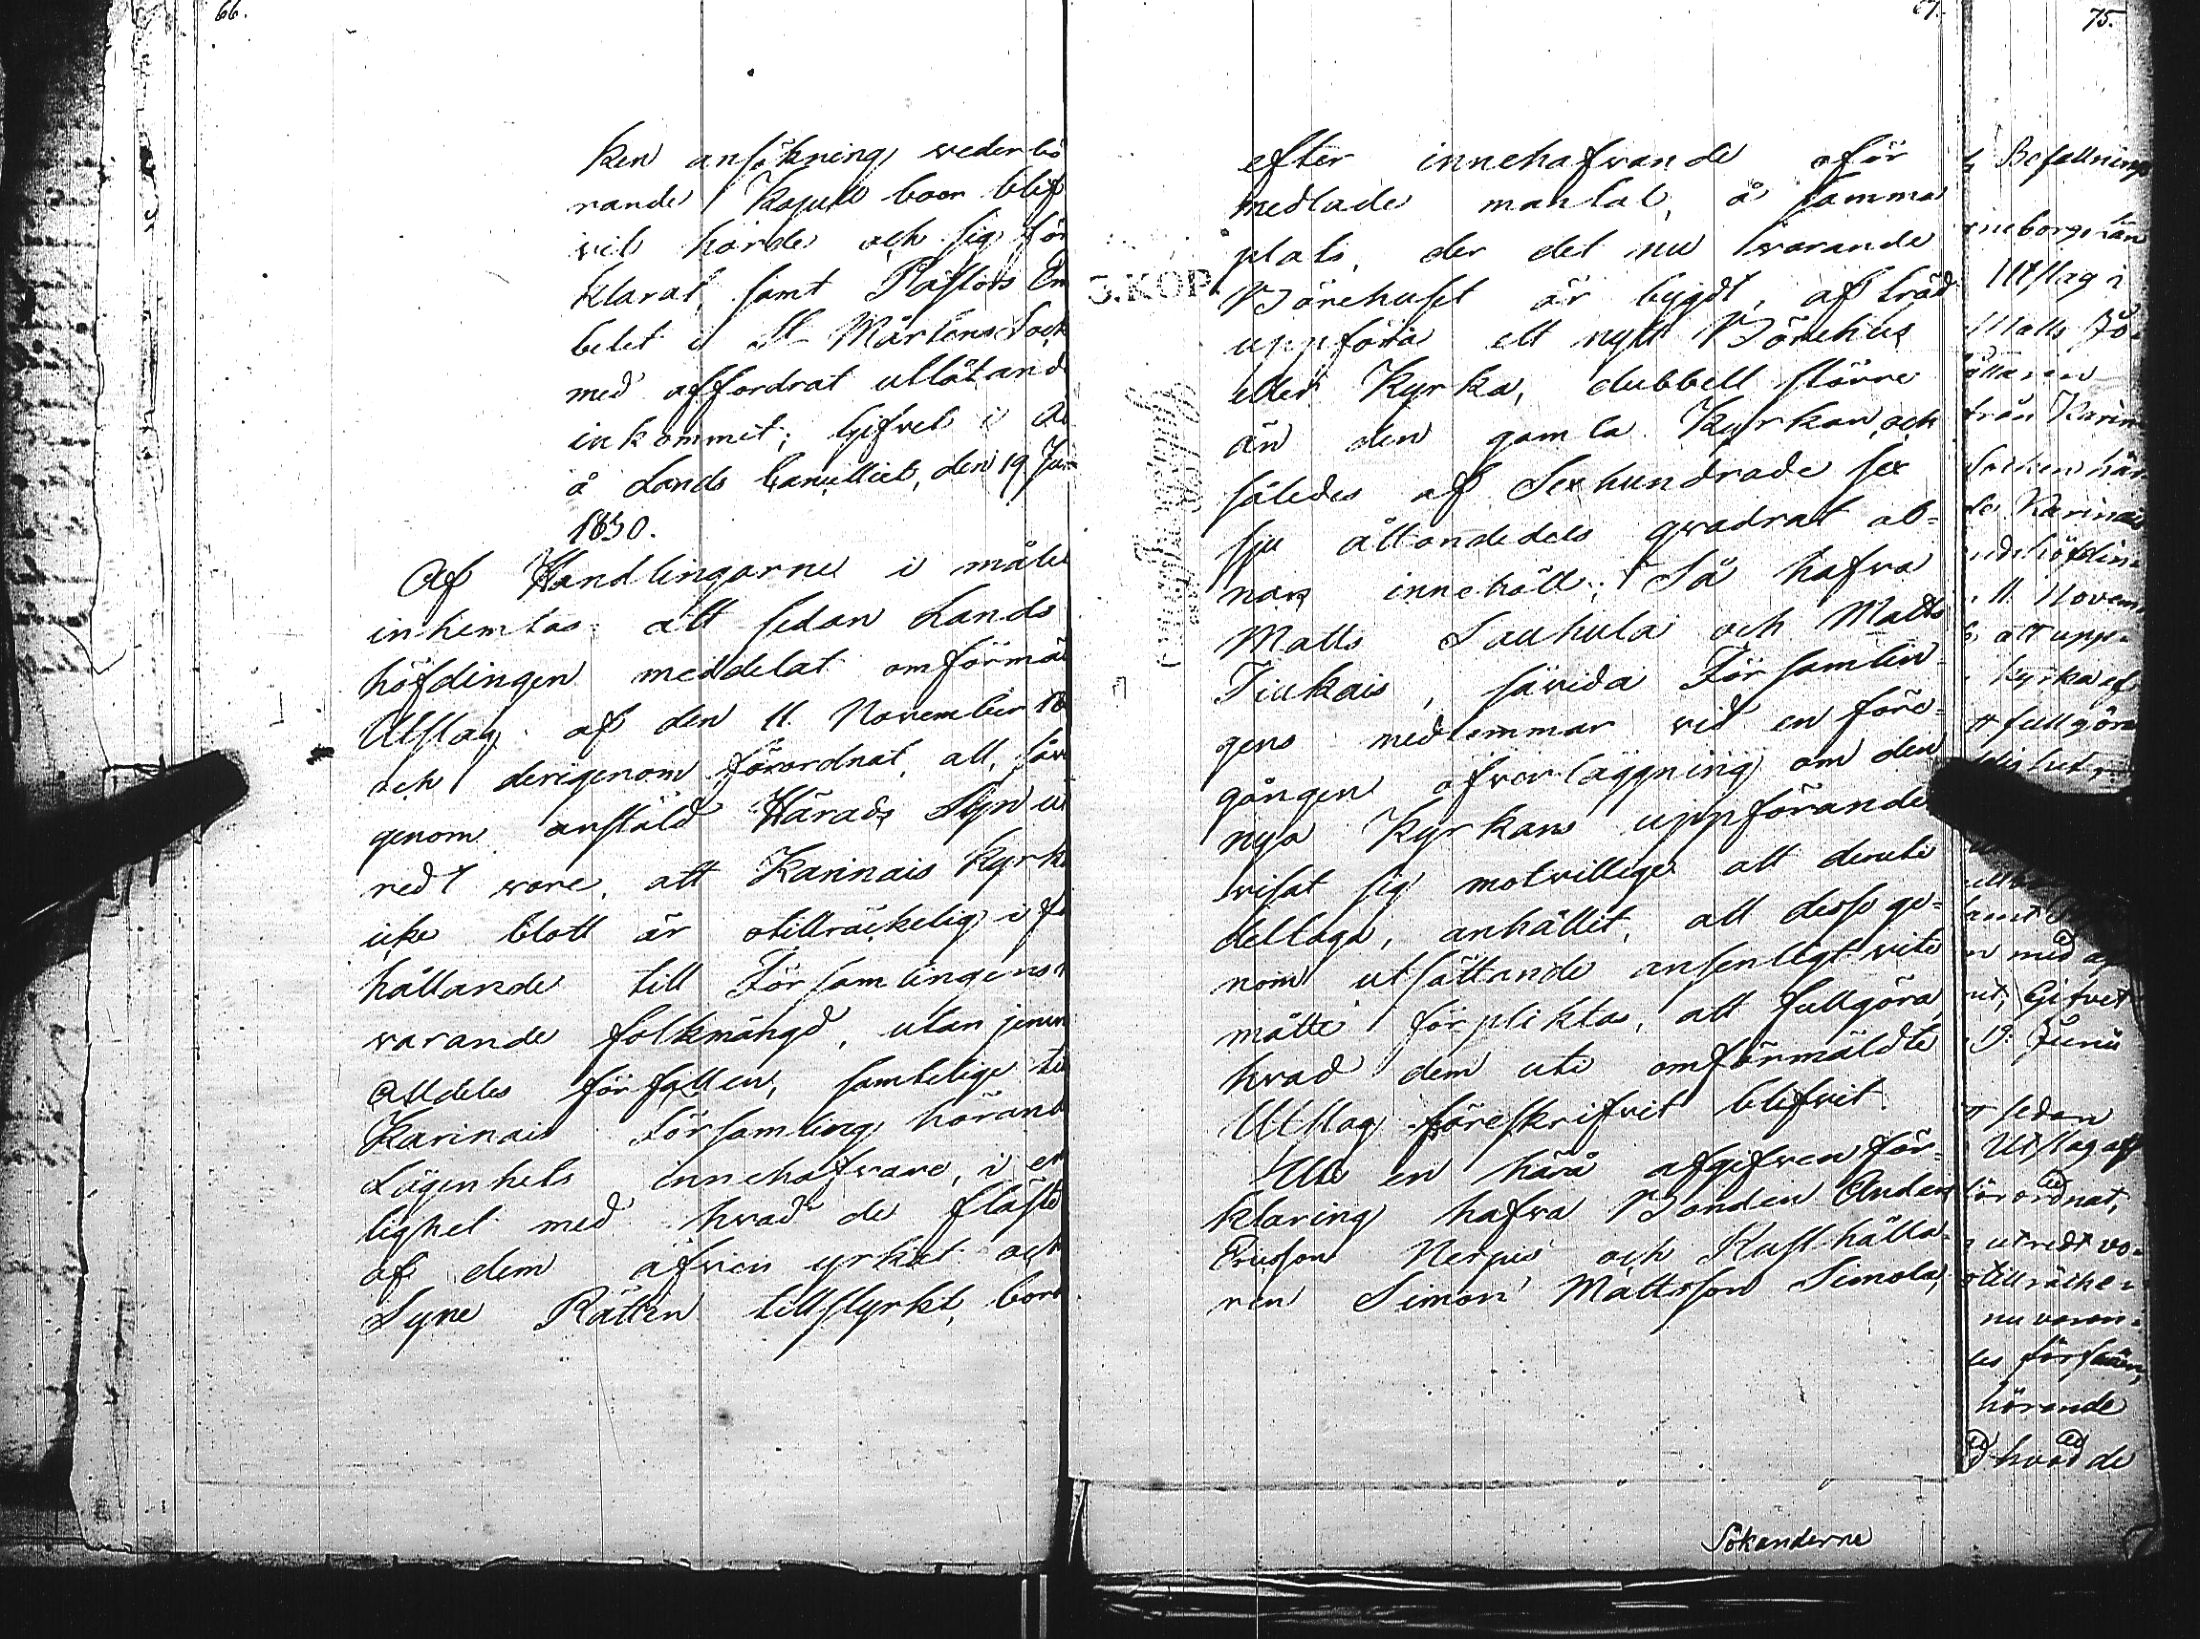 66.
ken ansökning wederbö
rande Kapell boer blif
vit hörde och sig för
klarat, samt Pastors Em
betet i St Mårtens Sock
med affordrat utlåtand
inkommit; Gifvet i Åb
å Lands Cancelliet, den 19 Jun
1830.
Af Handlingarne i måle
inhemtas: att sedan Lands
höfdingen meddelat omförmäl
Utslag af den 11. November 18
och derigenom förordnat, att, såv
genom anstäld Härads Syn ut
redt wore, att Karinais Kyrk
icke blott är otillräckelig i fö
hållande till Församlingens n
varande folkmängd, utan jemv
alldeles förfallen, samtelige til
Karinais Församling hörand
Lägenhets innehafvare, i en
lighet med hvad de fläste
af dem äfven yrkat och
Syne Rätten tillstyrkt, bord
67.
efter innehafvande oför
medlade mantal, å samma
plats, der det nu warande
Bönehuset är bygdt, af träd
uppföra ett nytt Bönehus
eller Kyrka, dubbelt större
än den gamla Kyrkan, och
således af Sexhundrade sex
sju åttondedels qvadrat al-
nars innehåll; Så hafva
Matts Sauhula och Matts
Tiukais, såvida Församlin-
gens medlemmar vid en före-
gången öfverläggning om den
nya Kyrkans uppförande
visat sig motvillige att deruti
deltaga, anhållit, att desse ge-
nom utsättande ansenligt vite
måtte förpliktas, att fullgöra,
hvad dem uti omförmäldte
Utslag föreskrifvit blifvit.
Uti en härå afgifven för-
klaring hafva Bonden Anders
Ericsson Nerpis och Rusthålla-
ren Simon Mattsson Simola,
Sökanderne
3.KOP.
75.
Befallnings
neborgs län
Utslag i
Matts Jo-
från Karin
Socken här
Karinais
höfdin-
11. Novem-
att upp-
Kyrka af
fullgöra
med af
Gifvet
Junii
sedan
Utslag af
förordnat,
utredt vo-
otillräcke-
nu varan-
hörande
hvad de